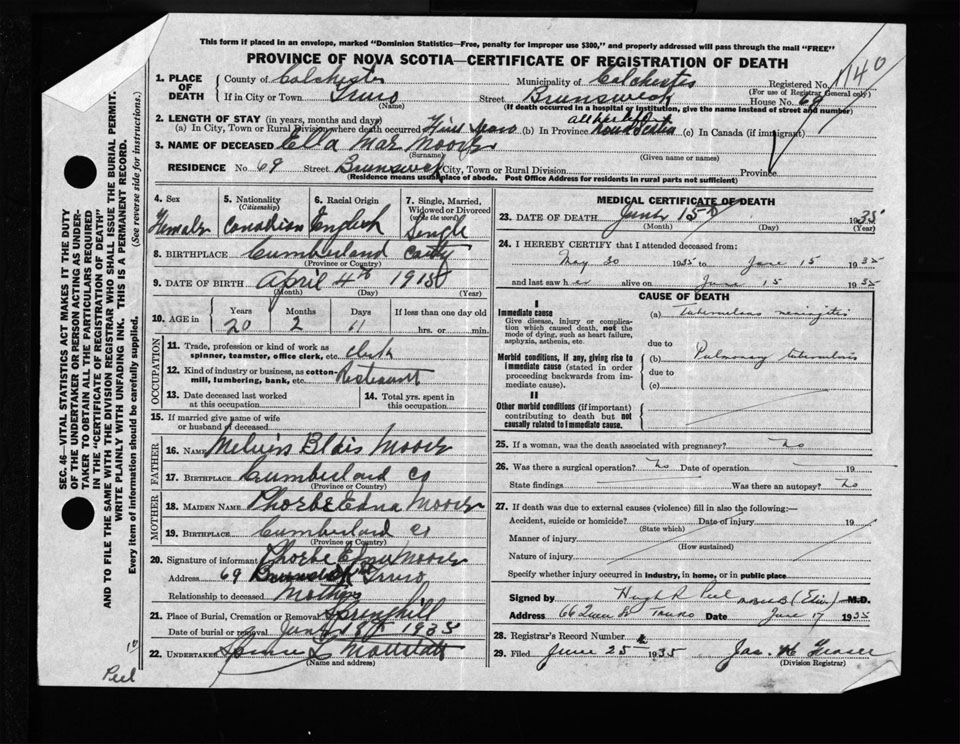 This form if placed in an envelope, marked "Dominion Statistics—Free, penalty for improper use $300," and properly addressed will pass through the mail "FREE"
PROVINCE OF NOVA SCOTIA—CERTIFICATE OF REGISTRATION OF DEATH
1. PLACE OF DEATH County of Colchester Municipality of Colchester Registered No. 1140
(For use of Registrar General only)
If in City or Town Truro Street Brunswick House No. 69
(Name) (If death occurred in a hospital or institution, give the name instead of street and number)
2. LENGTH OF STAY (in years, months and days)
(a) In City, Town or Rural Division where death occurred Five years (b) In Province all her life Nova Scotia (c) In Canada (if immigrant)
3. NAME OF DECEASED Ella Mae Moore
(Surname) (Given name or names)
RESIDENCE No. 69 Street Brunswick City, Town or Rural Division Province
(Residence means usual place of abode. Post Office Address for residents in rural parts not sufficient)
4. Sex Female
5. Nationality (Citizenship) Canadian
6. Racial Origin English
7. Single, Married, Widowed or Divorced (write the word) Single
8. BIRTHPLACE Cumberland County
(Province or Country)
9. DATE OF BIRTH April 4th 1915
(Month) (Day) (Year)
10. AGE in Years 20 Months 2 Days 11 If less than one day old hrs. or min.
OCCUPATION
11. Trade, profession or kind of work as spinner, teamster, office clerk, etc. Clerk
12. Kind of industry or business, as cotton-mill, lumbering, bank, etc. Restaurant
13. Date deceased last worked at this occupation
14. Total yrs. spent in this occupation
15. If married give name of wife or husband of deceased
FATHER
16. NAME Melvin Blair Moore
17. BIRTHPLACE Cumberland Co
(Province or Country)
MOTHER
18. MAIDEN NAME Phoebe Edna Moore
19. BIRTHPLACE Cumberland Co
(Province or Country)
20. Signature of informant Phoebe Edna Moore
Address 69 Brunswick Truro
Relationship to deceased Mother
21. Place of Burial, Cremation or Removal Springhill
Date of burial or removal June 18th 1935
22. UNDERTAKER
(Name and address)
MEDICAL CERTIFICATE OF DEATH
23. DATE OF DEATH June 15th 1935
(Month) (Day) (Year)
24. I HEREBY CERTIFY that I attended deceased from:
May 30 1935 to June 15 1935
and last saw her alive on June 15 1935
CAUSE OF DEATH
I
Immediate cause
Give disease, injury or complication which caused death, not the mode of dying, such as heart failure, asphyxia, asthenia, etc.
(a) Tuberculous meningitis
due to
Morbid conditions, if any, giving rise to immediate cause (stated in order proceeding backwards from immediate cause).
(b) Pulmonary tuberculosis
due to
(c)
II
Other morbid conditions (if important) contributing to death but not causally related to immediate cause.
25. If a woman, was the death associated with pregnancy? No
26. Was there a surgical operation? No Date of operation 19
State findings Was there an autopsy? No
27. If death was due to external causes (violence) fill in also the following:—
Accident, suicide or homicide? Date of injury 19
(State which)
Manner of injury
(How sustained)
Nature of injury
Specify whether injury occurred in industry, in home, or in public place
Signed by Hugh R Peel M.D.
Address 66 Queen St Truro Date June 17 1935
28. Registrar's Record Number
29. Filed June 25 1935 Jas. Fraser
(Division Registrar)
SEC. 46—VITAL STATISTICS ACT MAKES IT THE DUTY
OF THE UNDERTAKER OR PERSON ACTING AS UNDER-
TAKER TO OBTAIN ALL THE PARTICULARS REQUIRED
IN THE "CERTIFICATE OF REGISTRATION OF DEATH"
AND TO FILE THE SAME WITH THE DIVISION REGISTRAR WHO SHALL ISSUE THE BURIAL PERMIT.
WRITE PLAINLY WITH UNFADING INK. THIS IS A PERMANENT RECORD.
Every item of information should be carefully supplied. (See reverse side for instructions.)
Peel